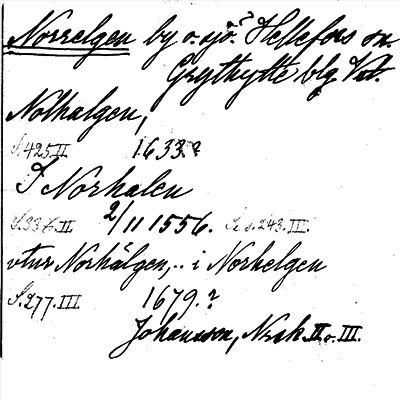 Norrelgen by o. sjö.? Hellefors sn.
Grythytte blg Vstm.
Nolhalgen,
S. 425. II 1633.?
I Norhalen
S. 336. II 2/11 1556. Se s. 243. III.
utur Norhälgen,.. i Norhelgen
S. 277. III 1679.?
Johansson, Norak. II o. III.